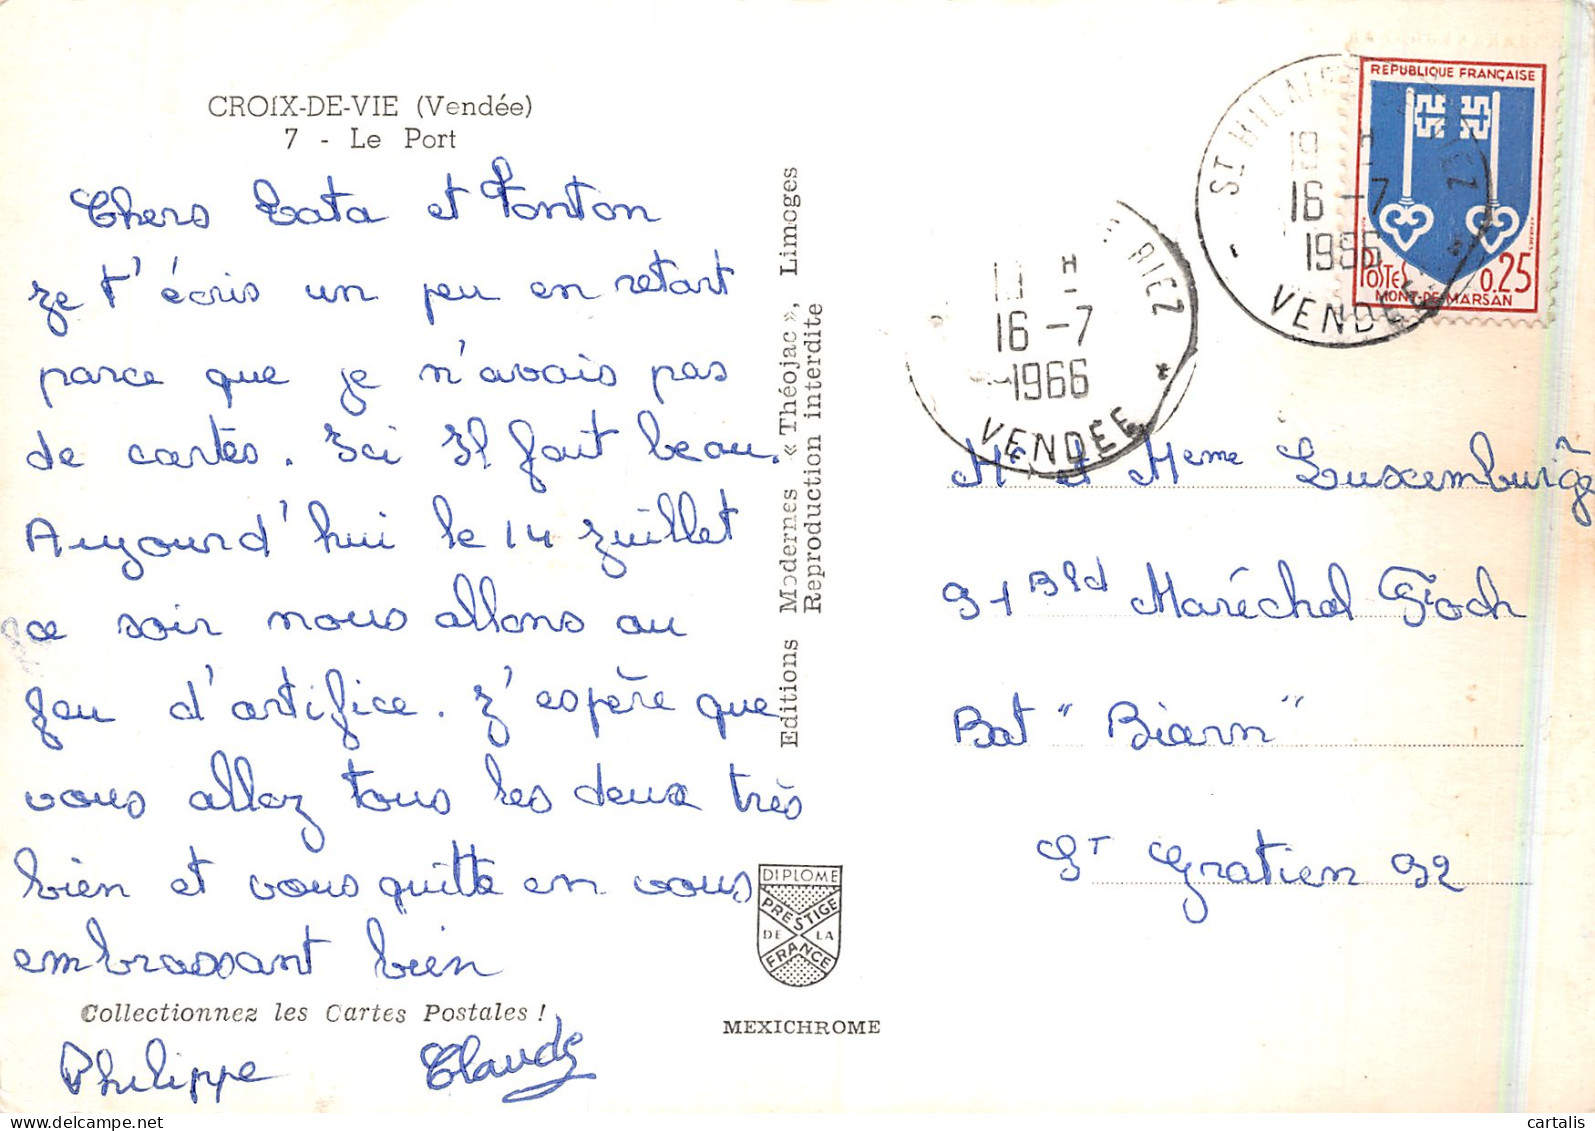 CROIX-DE-VIE (Vendée)
7 - Le Port
Chers Tata et Tonton
je t'écris un peu en retart
parce que je n'avais pas
de cartes. Ici Il fait beau.
Aujourd'hui le 14 juillet
ce soir nous allons au
feu d'artifice. J'espère que
vous allez tous les deux très
bien et vous quitte en vous
embrassant bien
Collectionnez les Cartes Postales !
Philippe Claude
Editions Modernes « Théojac », Limoges
Reproduction interdite
DIPLOME
PRESTIGE
DE LA
FRANCE
MEXICHROME
RIEZ
H
16 -7
1966
VENDÉE *
ST HILAIRE RIEZ
19 H
16 -7
1966
VENDÉE *
REPUBLIQUE FRANÇAISE
POSTES 0.25
MONT-DE-MARSAN
Mr et Meme Luxemburge
91 Bld Maréchal Foch
Bat "Biarn"
ST Gratien 92
cartalis